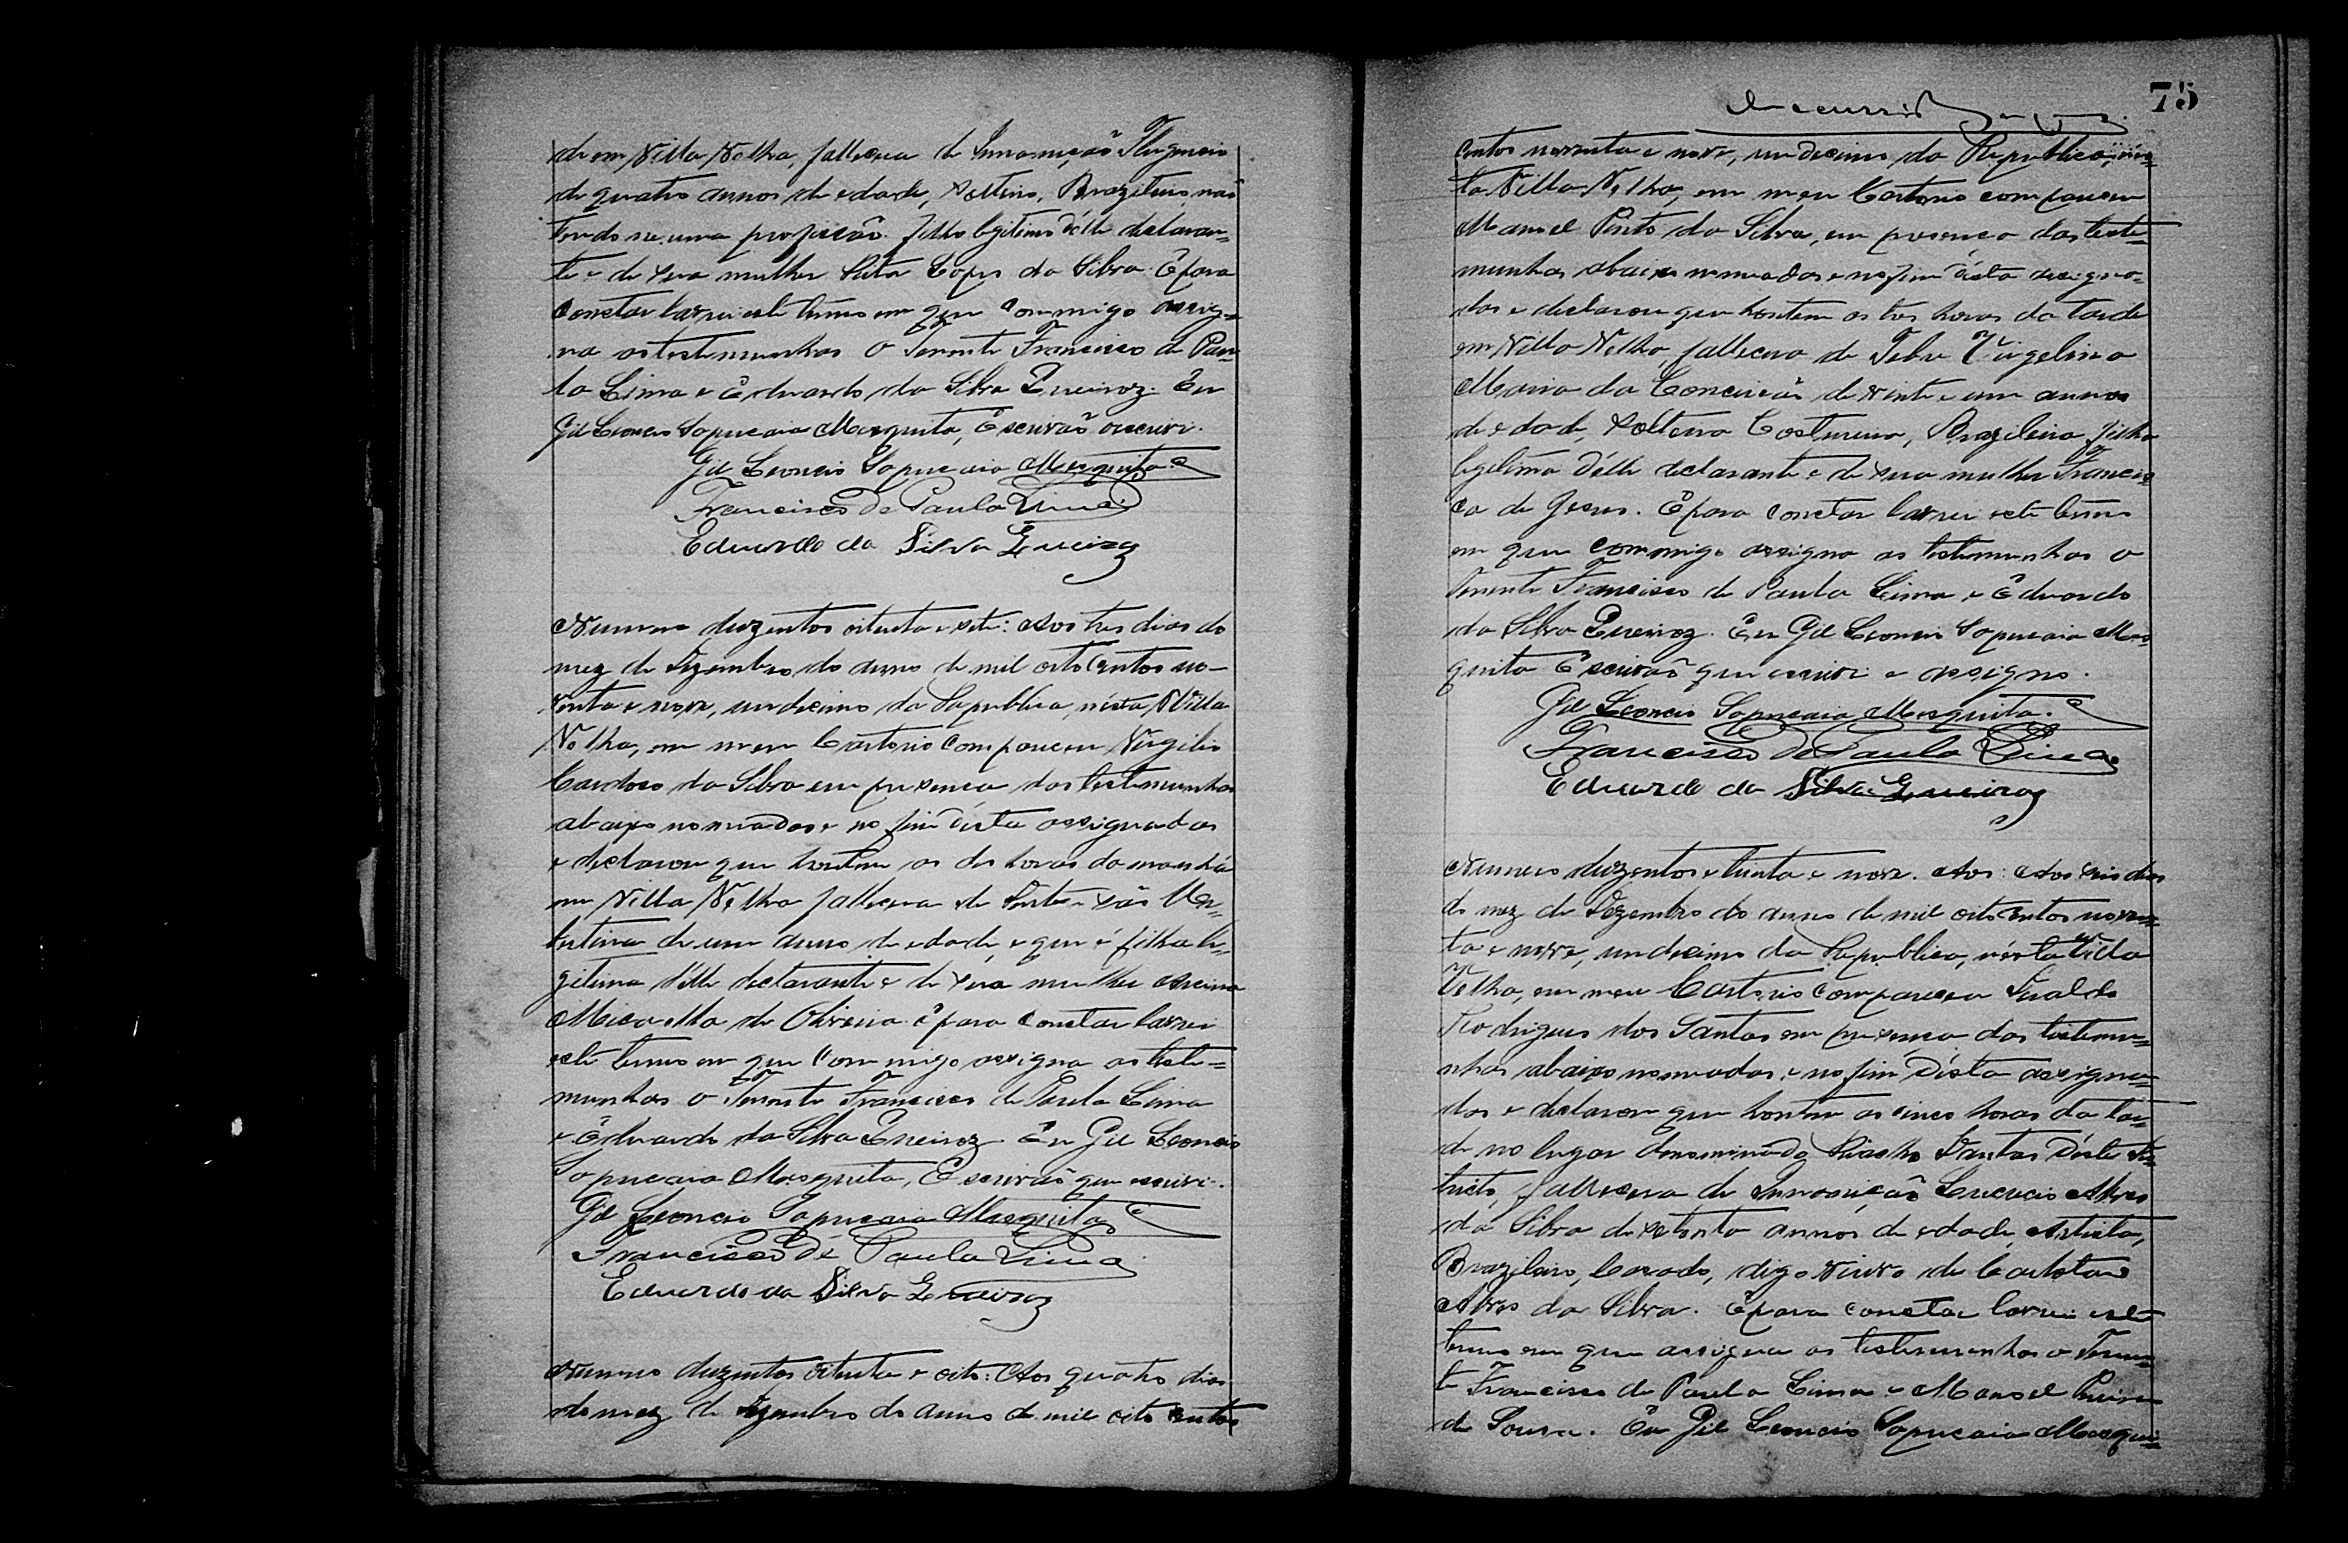 de em Villa Velha, fallecera de Innanição Fulgencio
de quatro annos de edade, solteiro, Brazileiro, não
tendo neuma profissão. filho legitimo délle declaran-
te e de sua mulher Lopes da Silva. E para
constar lavrei este termo em que commigo assig-
na as testemunhas o Tenente Francisco de Pau-
la Lima e Eduardo da Silva Queiroz. Eu
Gil Leoncio Sapucaia Mesquita, Escrivão escrivi.
Gil Leoncio Sapucaia Mesquita
Francisco de Paula Lima
Eduardo da Silva Queiroz
Numero duzentos oitenta e sete: Aos tres dias do
mez de Dezembro do anno de mil oito centos no-
venta e nove, undecimo da Republica, nésta Villa
Velha, em meu Cartorio compareceu Virgilio
Cardoso da Silva em presença das testemunhas
abaixo nomeadas e no fim désta assignadas
e declarou que hontem as des horas da manhã
em Villa Velha fallecera de
de um anno de edade, e que é filha le-
gitima délle declarante e de sua mulher
de Oliveira. E para constar lavrei
este termo em que commigo assigna as teste-
munhas o Tenente Francisco de Paula Lima
e Eduardo da Silva Queiroz. Eu Gil Leoncio
Sapucaia Mesquita, Escrivão que escrivi.
Gil Leoncio Sapucaia Mesquita
Francisco de Paula Lima
Eduardo da Silva Queiroz
Numero duzentos oitenta e oito: Aos quatro dias
do mez de Dezembro do anno de mil oito centos
75
centos noventa e nove, undecimo da Republica, nés-
ta Villa Velha, em meu Cartorio compareceu
Manoel Pinto da Silva, em presença das teste-
munhas abaixo nomeadas e no fim désta assigna-
das e declarou que hontem as tres horas da tarde
em Villa Velha, fallecera de Febre Virgelina
Maria da Conceição de vinte e um annos
de edade, solteira Costureira, Brazileira filha
legitima délle declarante e de sua mulher Francis-
ca de Jesus. E para constar lavrei este termo
em que commigo assigna as testemunhas o
Tenente Francisco de Paula Lima e Eduardo
da Silva Queiroz. Eu Gil Leoncio Sapucaia Mes-
quita Escrivão que escrivi e assigno.
Gil Leoncio Sapucaia Mesquita.
Francisco de Paula Lima
Eduardo da Silva Queiroz
Numero duzentos e trinta e nove. Aos: Aos seis dias
do mez de Dezembro do anno de mil oito centos noven-
ta e nove, undecimo da Republica, nésta
Velha, em meu Cartorio compareceu
Rodrigues dos Santos em presença das testemu-
nhas abaixo nomeadas, e no fim désta assigna-
das e declarou que hontem as cinco horas da tar-
de no lugar denominado Riacho Dantas déste Dis-
tricto, fallecera de Innanição Alves
da Silva de setenta annos de edade, Artista,
Brazileiro, Casado, digo Viuvo de
Alves da Silva. E para constar lavrei este
termo em que assigna as testemunhas o Tenen-
te Francisco de Paula Lima e Manoel
de Souza. Eu Gil Leoncio Sapucaia Mesqui-